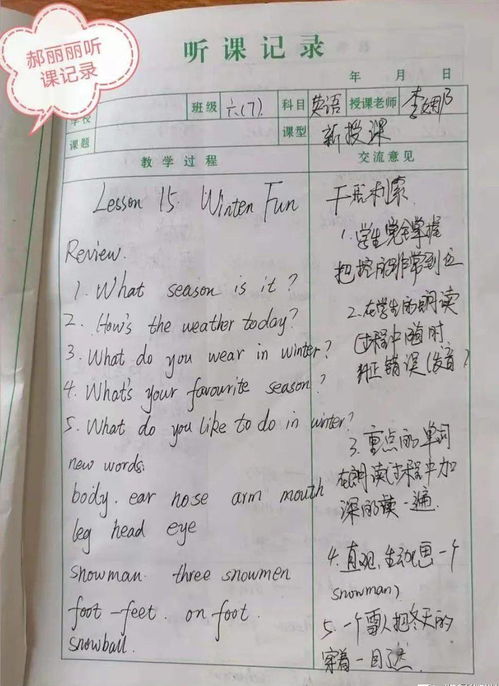 郝丽丽听
课记录
听课记录
年 月 日
学校 班级 六(7) 科目 英语 授课老师 李娜
课题 课型 新授课
教学过程 交流意见
Lesson 15. Winter Fun
Review.
1. What season is it?
2. How's the weather today?
3. What do you wear in winter?
4. What's your favourite season?
5. What do you like to do in winter?
new words.
body. ear nose arm mouth
leg head eye
snowman. three snowmen
foot-feet. on foot.
snowball.
干脆利索
1.学生完全掌握
把控的非常到位
2.在学生的朗读
过程中随时
纠正错误(发音)
3.重点的单词
在朗读过程中加
深的读一遍.
4.直观,生动画一个
snowman,
5.一个雪人把冬天的
穿着一目了然.